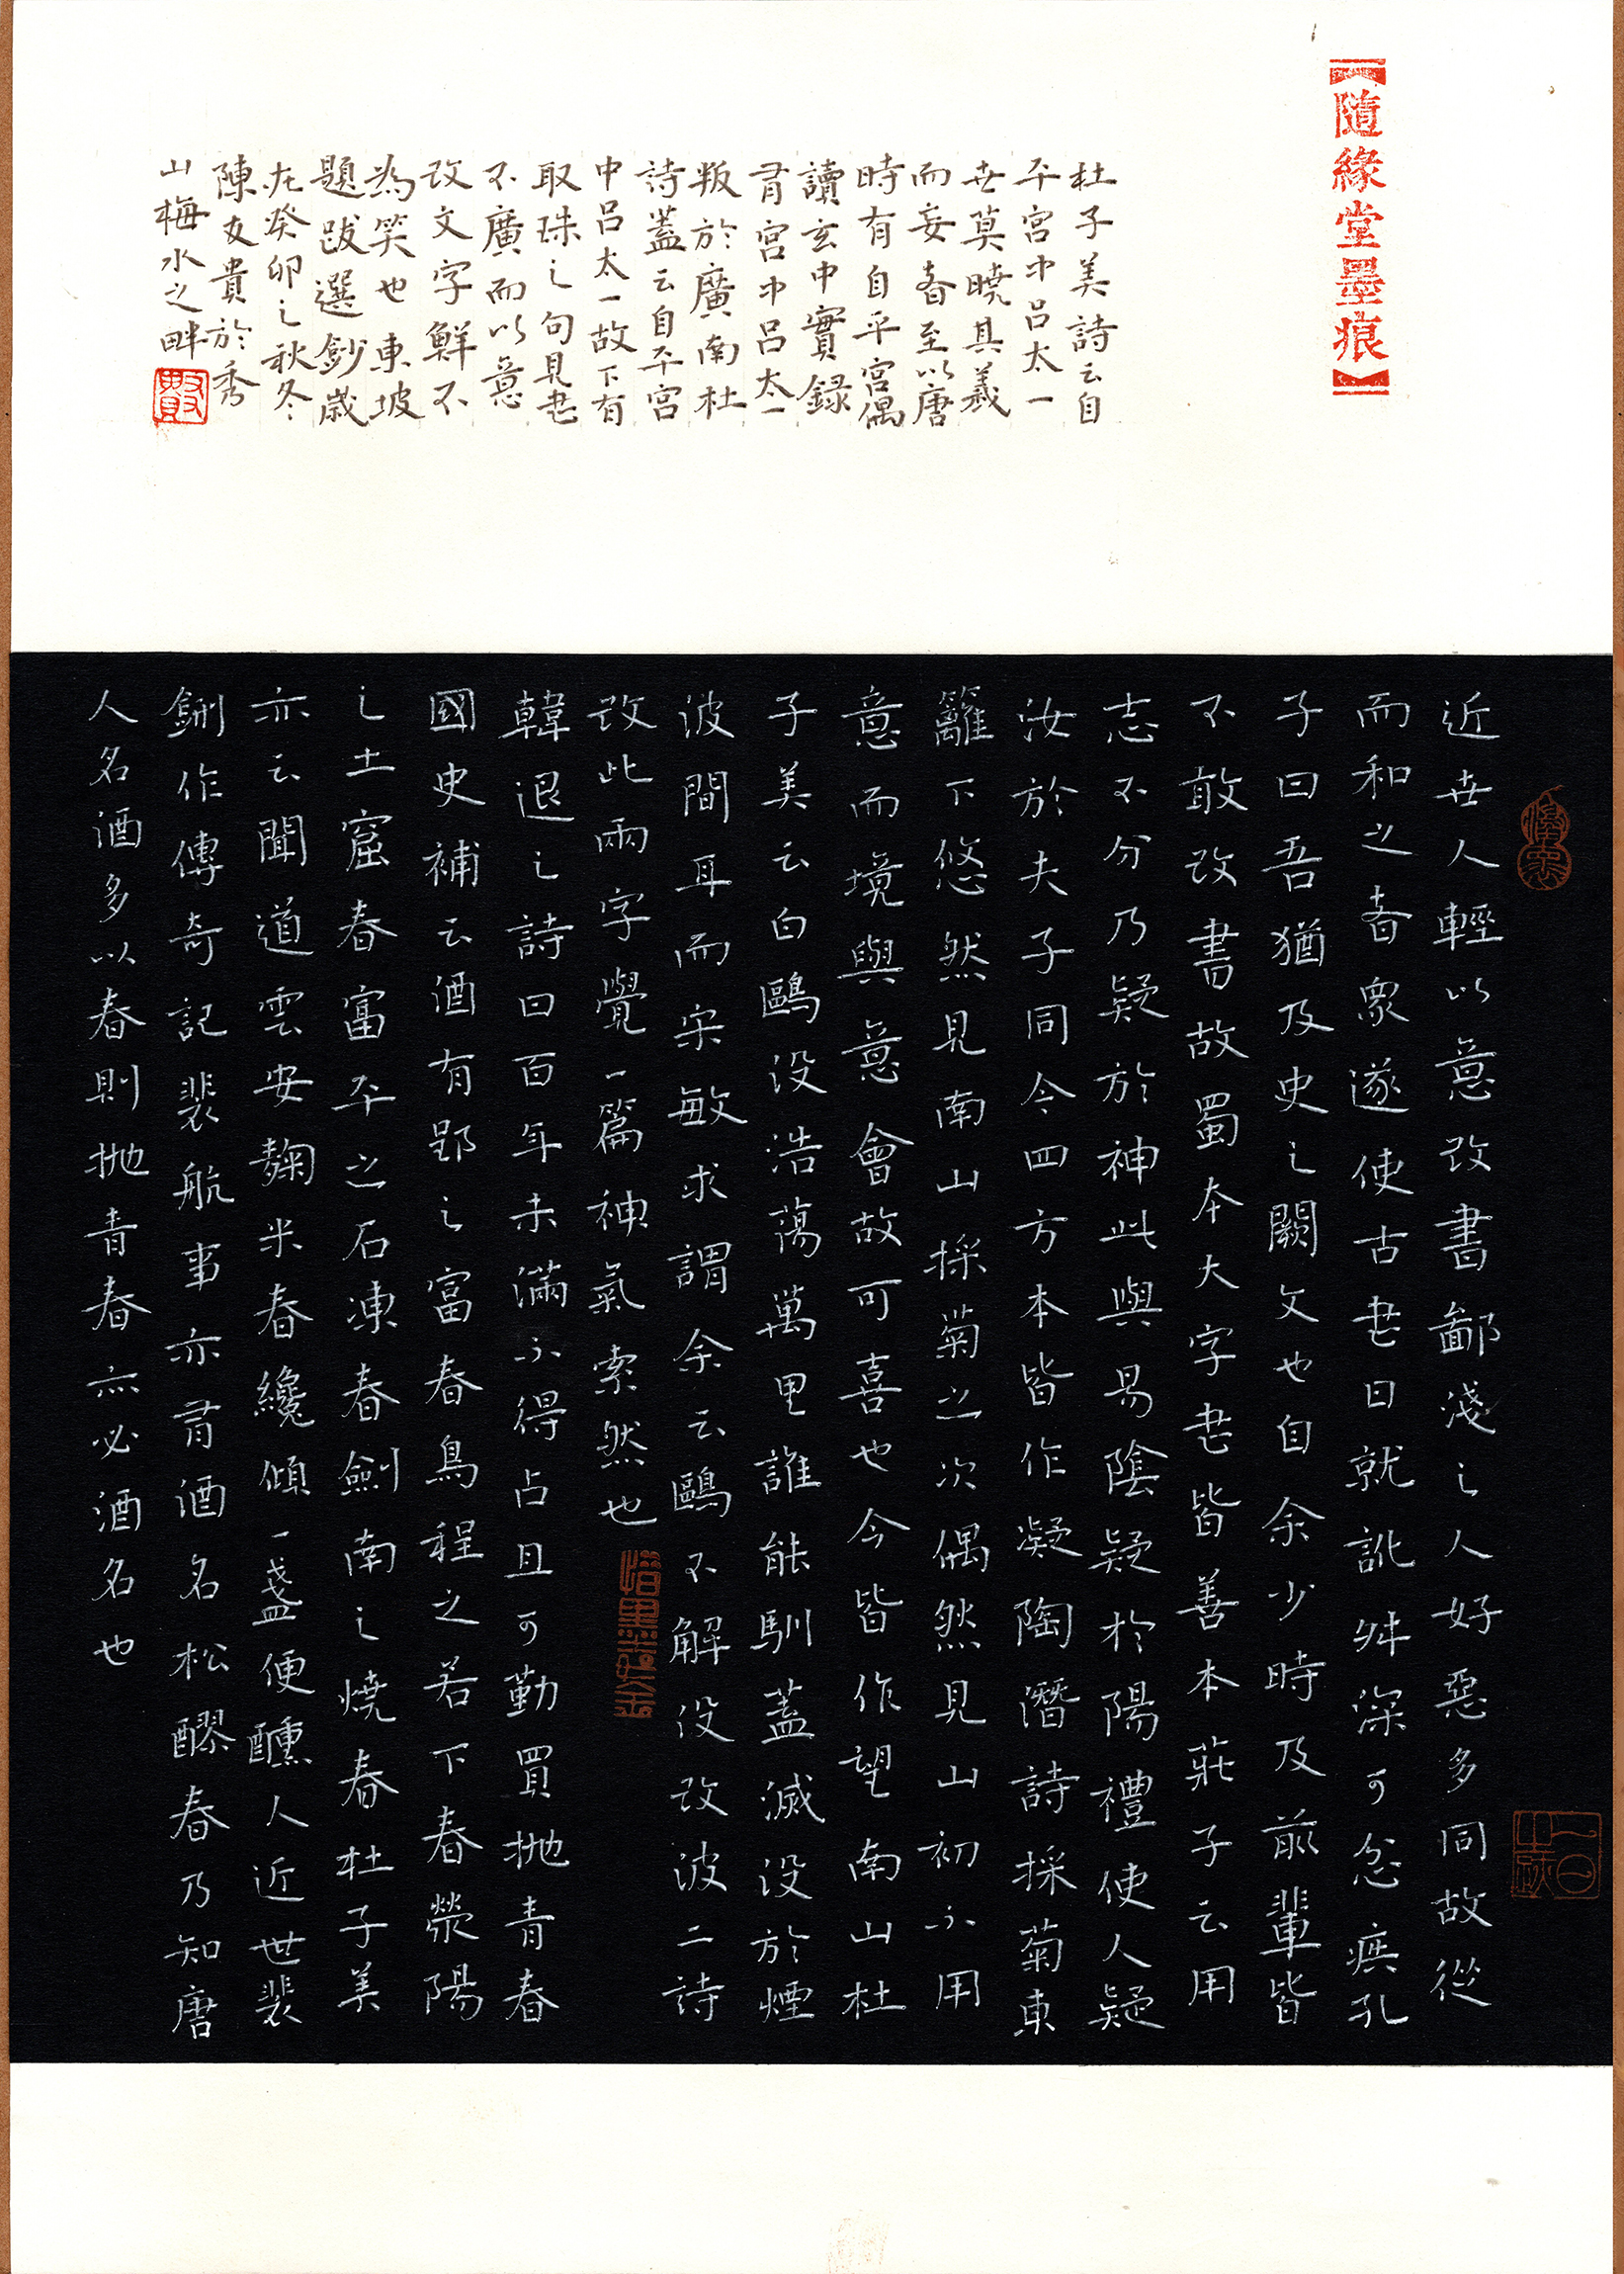 【隨緣堂墨痕】
杜子美詩云自
平宮中呂太一
世莫曉其義
而妄者至以唐
時有自平宮偶
讀玄中實録
有宮中呂太一
叛於廣南杜
詩蓋云自平宮
中呂太一故下有
取珠之句見書
不廣而以意
改文字鮮不
為笑也東坡
題跋選鈔歲
在癸卯之秋冬
陳友貴於秀
山梅水之畔
近世人輕以意改書鄙淺之人好惡多同故從
而和之者眾遂使古書日就訛舛深可忿疾孔
子曰吾猶及史之闕文也自余少時及前輩皆
不敢改書故蜀本大字書皆善本莊子云用
志不分乃疑於神此與易陰疑於陽禮使人疑
汝於夫子同今四方本皆作凝陶潛詩採菊東
籬下悠然見南山採菊之次偶然見山初不用
意而境與意會故可喜也今皆作望南山杜
子美云白鷗没浩蕩萬里誰能馴蓋滅没於煙
波間耳而宋敏求謂余云鷗不解没改波二詩
改此兩字覺一篇神氣索然也
韓退之詩曰百年未滿不得占且可勤買拋青春
國史補云酒有郢之富春烏程之若下春滎陽
之土窟春富平之石凍春劍南之燒春杜子美
亦云聞道雲安麴米春纔傾一盞便醺人近世裴
鉶作傳奇記裴航事亦有酒名松醪春乃知唐
人名酒多以春則拋青春亦必酒名也